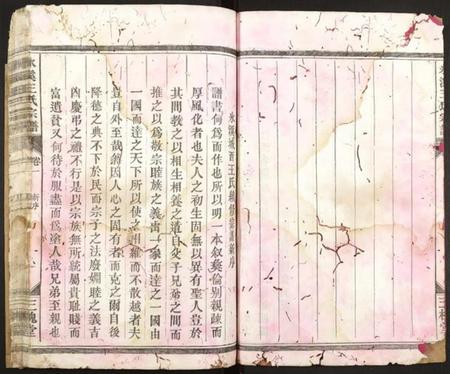 永溪城西王氏續修宗譜新序
譜書何為而作也所以明一本敘彝倫別親疎而
厚風化者也夫人之初生固無以異有聖人豈於
其間教之以相生相養之道自父子兄弟之間而
推之以為敬宗睦族之義由一家而達之一國由
一國而達之天下所以使之相維而不散越者夫
豈自外至哉蓋因人心之固有者而克之爾自後
降德之典不下於民而宗子之法廢婣睦之義吉
凶慶弔之禮不行是以宗族無所統屬貴恥賤而
富遺貧又何待於服盡而為塗人哉兄弟至親也
永溪王氏宗譜
卷一
新序
三槐堂
三槐堂